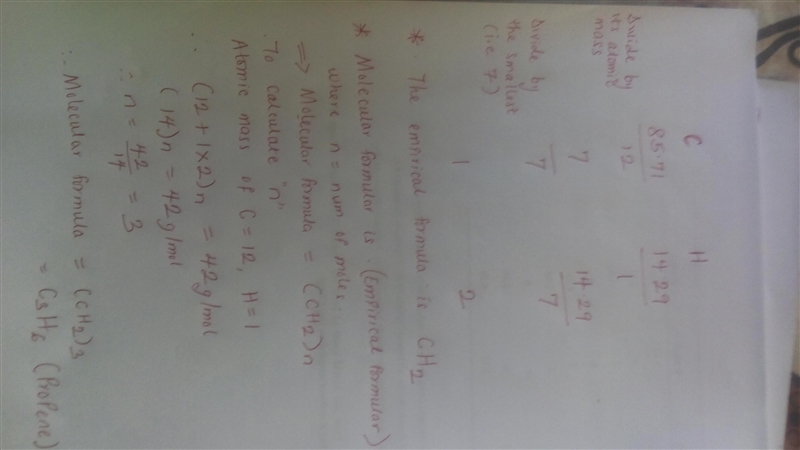 C H
Divide by its atomic mass 85.71/12 14.29/1
Divide by the smallest (i.e 7) 7/7 14.29/7
1 2
* The empirical formula is CH2
* Molecular formular is (Empirical formular)
where n = num of moles.
=> Molecular formula = (CH2)n
To calculate "n"
Atomic mass of C = 12, H = 1
∴ (12 + 1x2)n = 42g/mol
(14)n = 42g/mol
∴ n = 42/14 = 3
∴ Molecular formula = (CH2)3
= C3H6 (Propene)